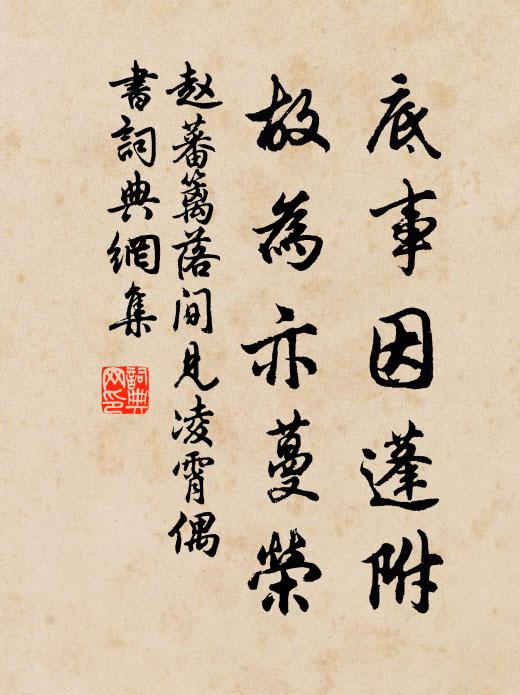 底事因蓬附
故為亦蔓榮
赵蕃篱落间见凌霄偶
書詞典網集
詞典
网印